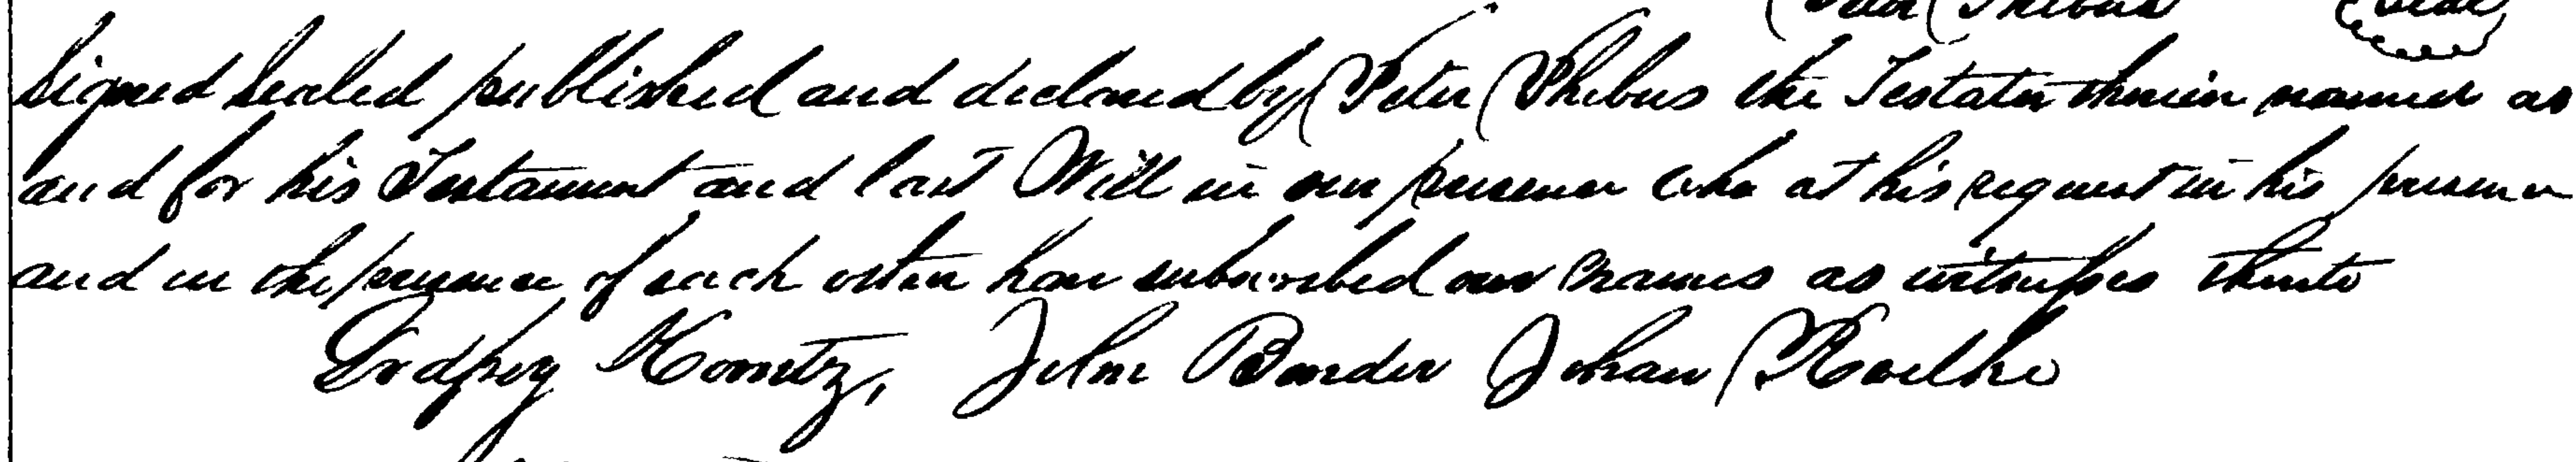 Peter Phebus Seal
Signed sealed published and declared by Peter Phebus the Testator therein named as
and for his Testament and last Will in our presence who at his request in his presence
and in the presence of each other have subscribed our names as witnesses thereto
Godfrey John Bender Johan